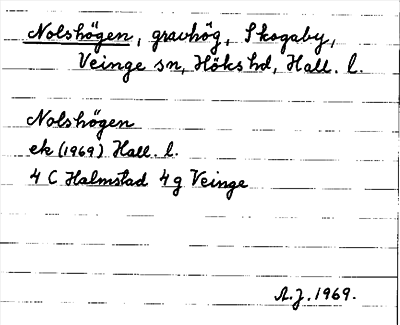 Nolshögen, gravhög, Skogaby,
Veinge sn, Höks hd, Hall. l.
Nolshögen
ek (1969) Hall. l.
4 C Halmstad 4 g Veinge
A.J. 1969.